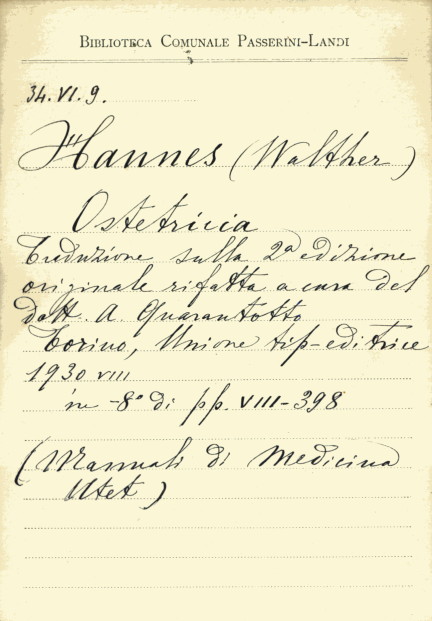 BIBLIOTECA COMUNALE PASSERINI-LANDI
34.VI.9.
Hannes (Walther)
Ostetricia
Traduzione sulla 2ª edizione
originale rifatta a cura del
dott. A. Quarantotto
Torino, Unione tip-editrice
1930 VIII
in -8° di pp. VIII-398
(Manuali di Medicina
Utet)